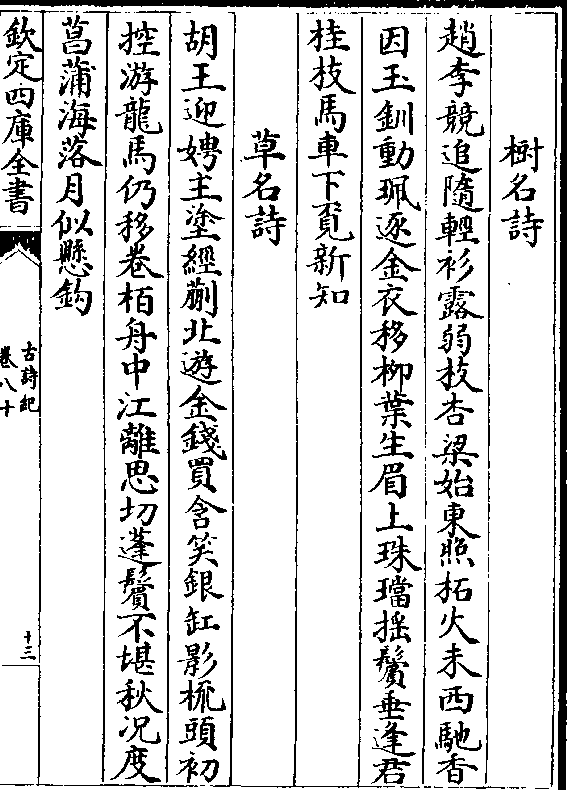 樹名詩
趙李競追隨輕衫露弱枝杏梁始東照柘火未西馳香
因玉釧動珮逐金衣移柳葉生眉上珠璫揺鬢垂逢君
桂枝馬車下覓新知
草名詩
胡王迎娉主塗經蒯北遊金錢買含笑銀缸影梳頭初
控游龍馬仍移卷栢舟中江離思切蓬鬢不堪秋况度
菖蒲海落月似懸鈎
欽定四庫全書
古詩紀
卷八十
十三